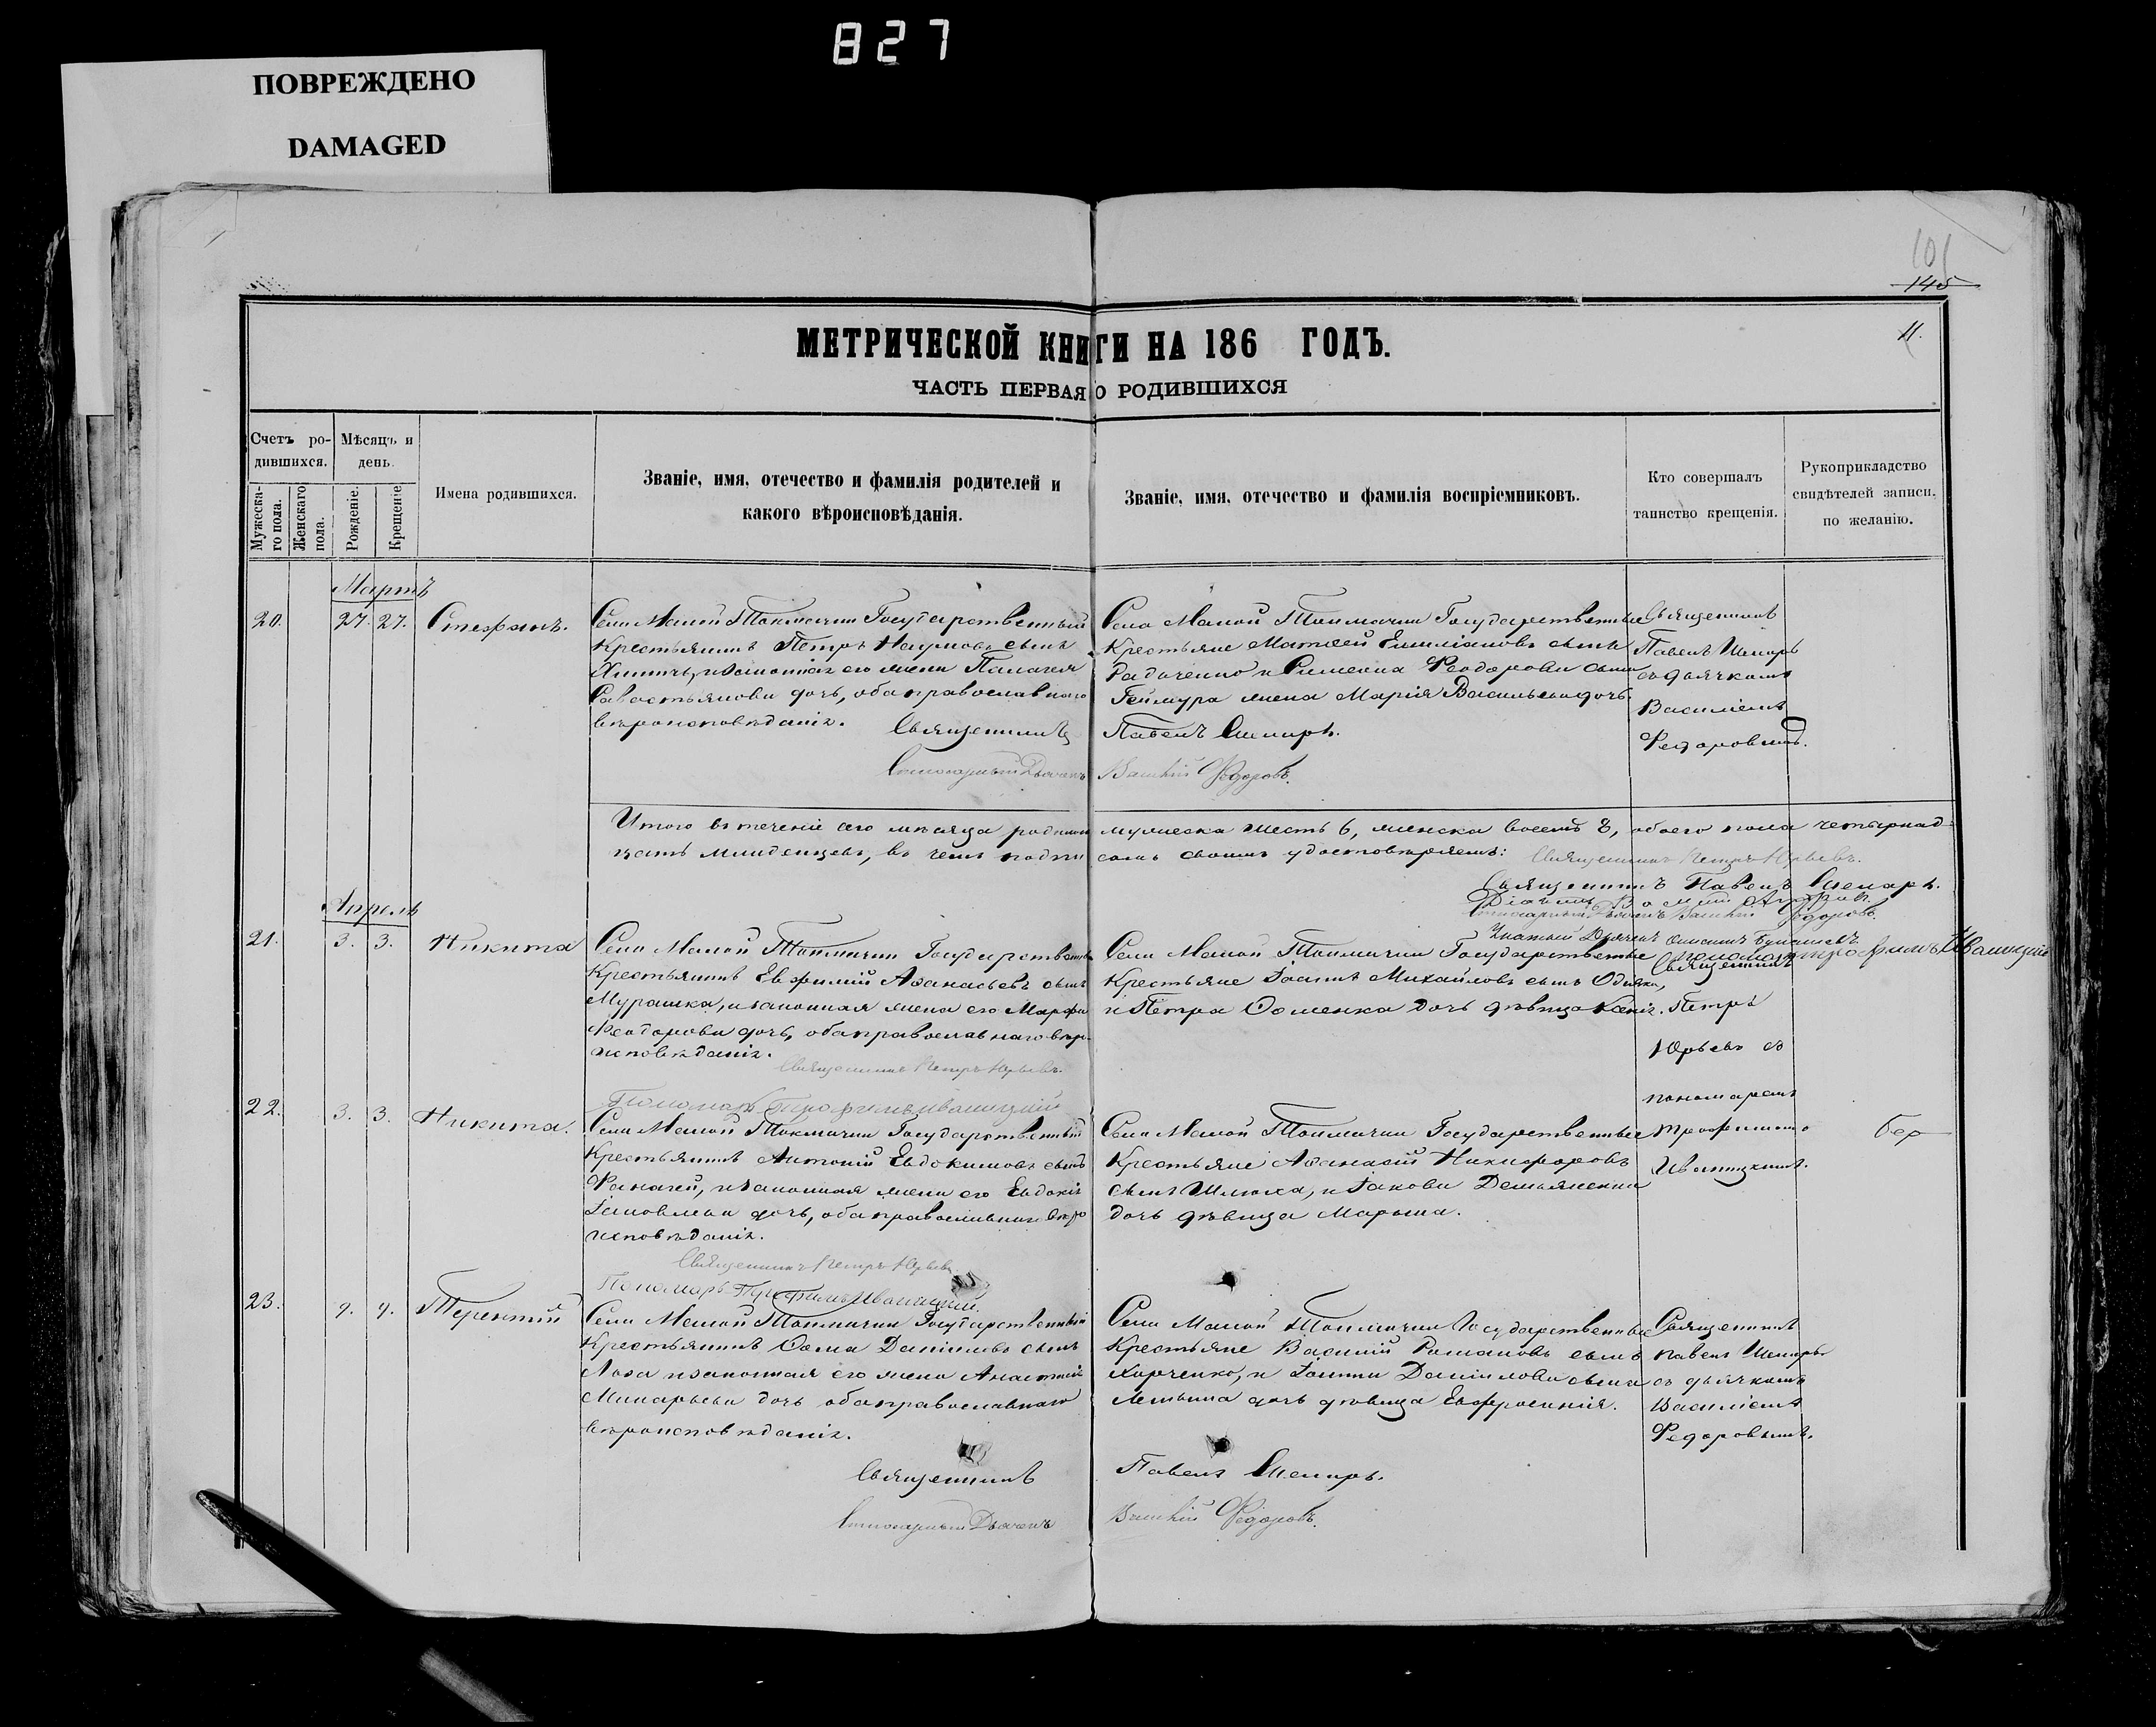 827
ПОВРЕЖДЕНО
DAMAGED
101
145
11.
МЕТРИЧЕСКОЙ КНИГИ НА 186 ГОДЪ.
ЧАСТЬ ПЕРВАЯ О РОДИВШИХСЯ
Счетъ ро-
дившихся.
Мужеска-
го пола.
Женскаго
пола.
Мѣсяцъ и
день.
Рожденіе.
Крещеніе
Имена родившихся.
Званіе, имя, отечество и фамилія родителей и
какого вѣроисповѣданія.
Званіе, имя, отечество и фамилія воспріемниковъ.
Кто совершалъ
таинство крещенія.
Рукоприкладство
свидѣтелей записи,
по желанію.
Мартъ
20. 27. 27. Стефанъ.
Села Малой Токмачки Государственный
Крестьянинъ Петръ Наумовъ сынъ
и законная его жена Палагея
Савостьянова дочь, оба православнаго
вѣроисповѣданія.
Села Малой Токмачки Государственные
Крестьяне Матѳей Емиліановъ сынъ
Радченко и Феодорова сына
жена Марія Васильева дочь.
Священникъ
Павелъ Шемаръ
съ дьячкомъ
Василіемъ
Федоровымъ.
Священникъ Павелъ Шемаръ.
Дьячекъ Василій Федоровъ.
Итого въ теченіе сего мѣсяца родилось мужеска шесть 6, женска восемь 8, обоего пола четырнад-
цать младенцевъ, въ чемъ подписомъ своимъ удостовѣряемъ: Священникъ Петръ Юрьевъ.
Священникъ Павелъ Шемаръ.
Дьячекъ Василій Федоровъ.
Пономарь Трофимъ Иваницкій
Апрель
21. 3. 3. Никита
Села Малой Токмачки Государственный
Крестьянинъ Евфимій Аѳанасьевъ сынъ
Мурашка, и законная жена его Марфа
Феодорова дочь, оба православнаго вѣро-
исповѣданія.
Священникъ Петръ Юрьевъ.
Пономарь Трофимъ Иваницкій
Села Малой Токмачки Государственные
Крестьяне Іоаннъ Михайловъ сынъ
и Петра Ѳоменка дочь дѣвица Ксенія.
Священникъ
Петръ
Юрьевъ съ
пономаремъ
Трофимомъ
Иваницкимъ.
22. 3. 3. Никита.
Села Малой Токмачки Государственный
Крестьянинъ Антоній Евдокимовъ сынъ
и законная жена его Евдокія
Іаковлева дочь, оба православнаго вѣро
исповѣданія.
Священникъ Петръ Юрьевъ
Пономарь Трофимъ Иваницкій.
Села Малой Токмачки Государственные
Крестьяне Аѳанасій Никифоровъ
сынъ и Іакова Демьяненка
дочь дѣвица Марѳа.
23. 9. 9. Терентій
Села Малой Токмачки Государственный
Крестьянинъ Ѳома Даніиловъ сынъ
Лоза и законная его жена Анастасія
Макарьева дочь оба православнаго
вѣроисповѣданія.
Села Малой Токмачки Государственные
Крестьяне Василій Романовъ сынъ
Харченко, и Іоанна Даніилова сына
дочь дѣвица Евфросинія.
Священникъ
Павелъ Шемаръ
съ дьячкомъ
Василіемъ
Федоровымъ.
Священникъ Павелъ Шемаръ.
Дьячекъ Василій Федоровъ.